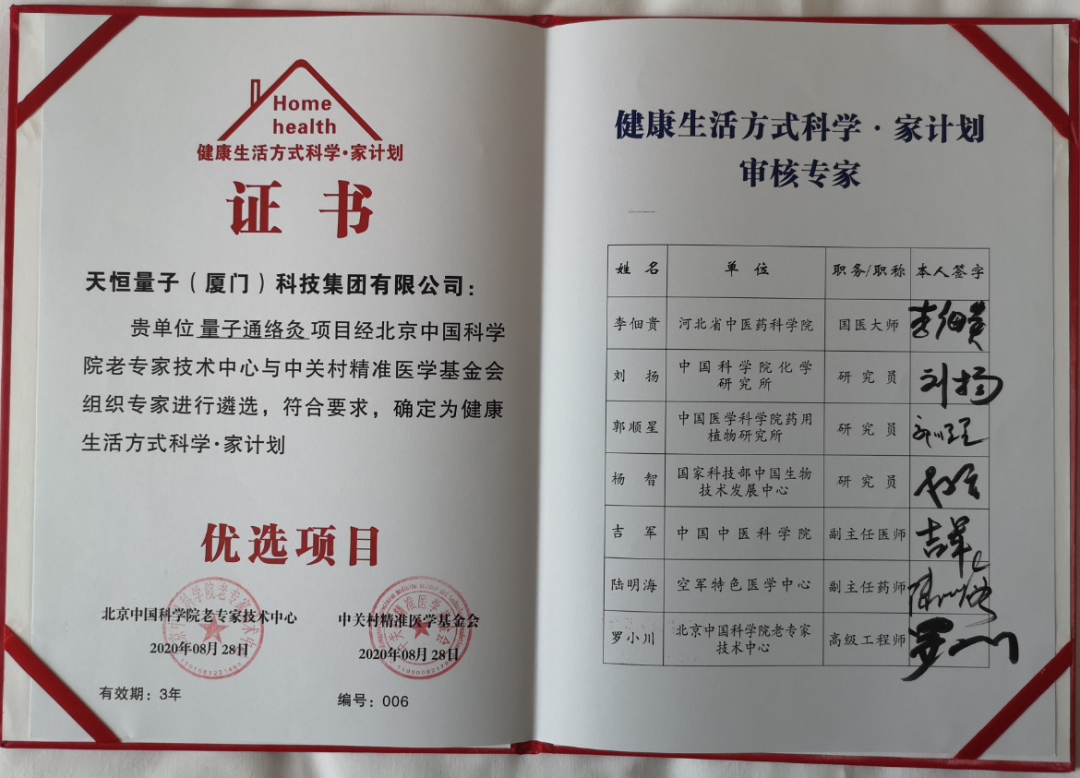 Home
health
健康生活方式科学·家计划
证书
天恒量子（厦门）科技集团有限公司：
贵单位 量子通络灸 项目经北京中国科学
院老专家技术中心与中关村精准医学基金会
组织专家进行遴选，符合要求，确定为健康
生活方式科学·家计划
优选项目
北京中国科学院老专家技术中心
2020年08月28日
中关村精准医学基金会
2020年08月28日
有效期：3年
编号：006
健康生活方式科学·家计划
审核专家
姓名 单位 职务/职称 本人签字
李佃贵 河北省中医药科学院 国医大师 李佃贵
刘扬 中国科学院化学
研究所 研究员 刘扬
郭顺星 中国医学科学院药用
植物研究所 研究员
杨智 国家科技部中国生物
技术发展中心 研究员
吉军 中国中医科学院 副主任医师 吉军
陆明海 空军特色医学中心 副主任药师
罗小川 北京中国科学院老专家
技术中心 高级工程师 罗小川